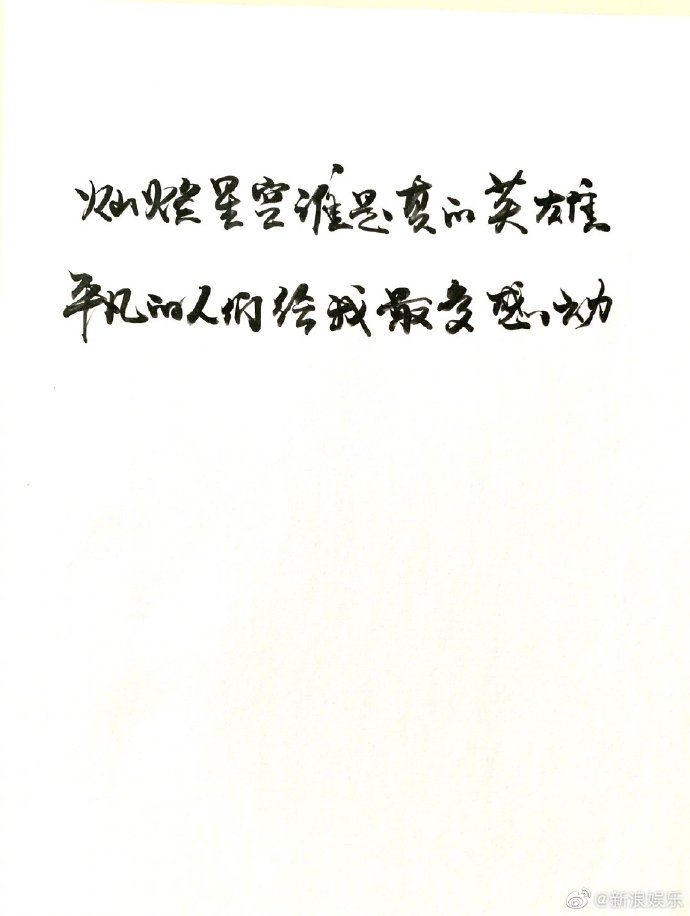 灿烂星空谁是真的英雄
平凡的人们给我最多感动
@新浪娱乐